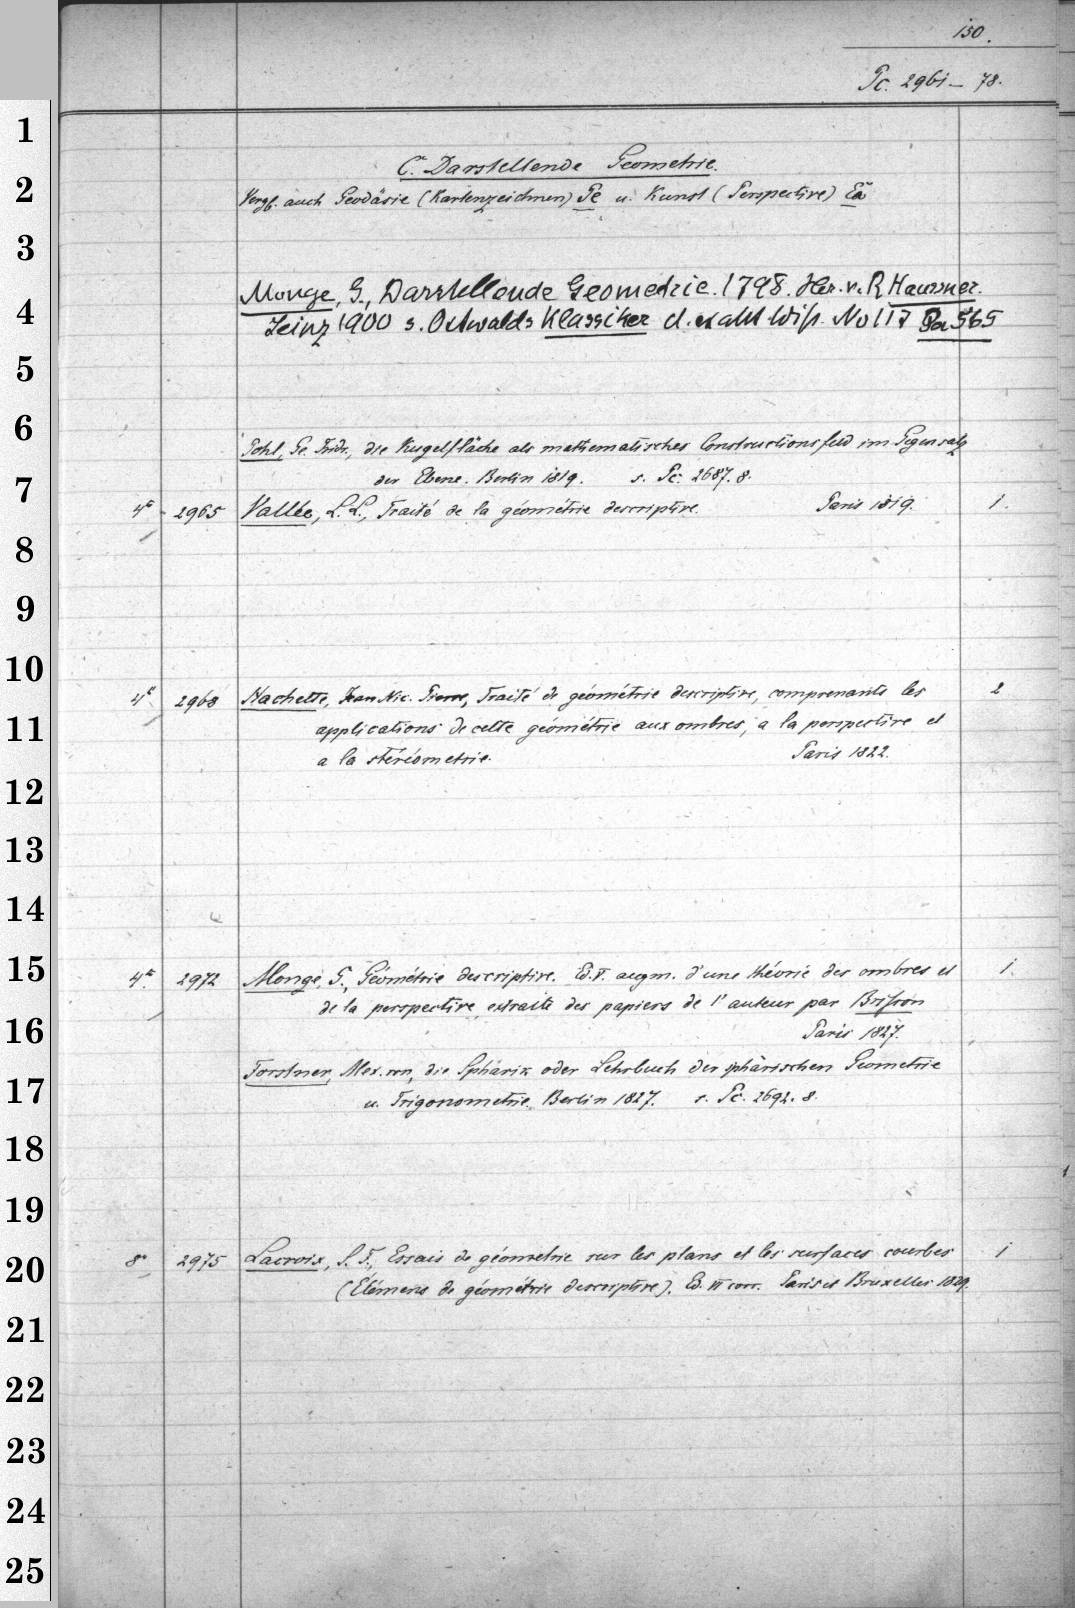 150.
Pc. 2961 – 78.
C. Darstellende Geometrie.
Vergl. auch Geodäsie (Kartenzeichnen) Pe u. Kunst (Perspective) Ea
Monge, G., Darstellende Geometrie. 1798. Her. v. R. Haussner.
Leipz 1900 s. Ostwalds Klassiker d. exakt Wiss. No 117 Pa 565
Pohl, Ge. Fridr., die Kugelfläche als mathematisches Constructionsfeld im Gegensatz
der Ebene. Berlin 1819. s. Pc. 2687. 8.
4° 2965 Vallée, L. L., Traité de la géométrie descriptive. Paris 1819. 1.
4° 2968 Hachette, Jean Nic. Pierre, Traité de géométrie descriptive, comprenants les 2
applications de cette géométrie aux ombres, a la perspective et
a la stéréometrie. Paris 1822.
4° 2972 Monge, G., Géométrie descriptive. Ed. V. augm. d'une théorie des ombres et 1.
de la perspective, extraite des papiers de l'auteur par Brisson
Paris 1827.
Forstner, Alex. von, die Sphärik oder Lehrbuch der sphärischen Geometrie
u. Trigonometrie. Berlin 1827. s. Pc. 2692. 8.
8° 2975 Lacroix, S. F., Essais de géometrie sur les plans et les surfaces courbes 1
(Elémens de géométrie descriptive). Ed. VI corr. Paris et Bruxelles 1829.
1
2
3
4
5
6
7
8
9
10
11
12
13
14
15
16
17
18
19
20
21
22
23
24
25